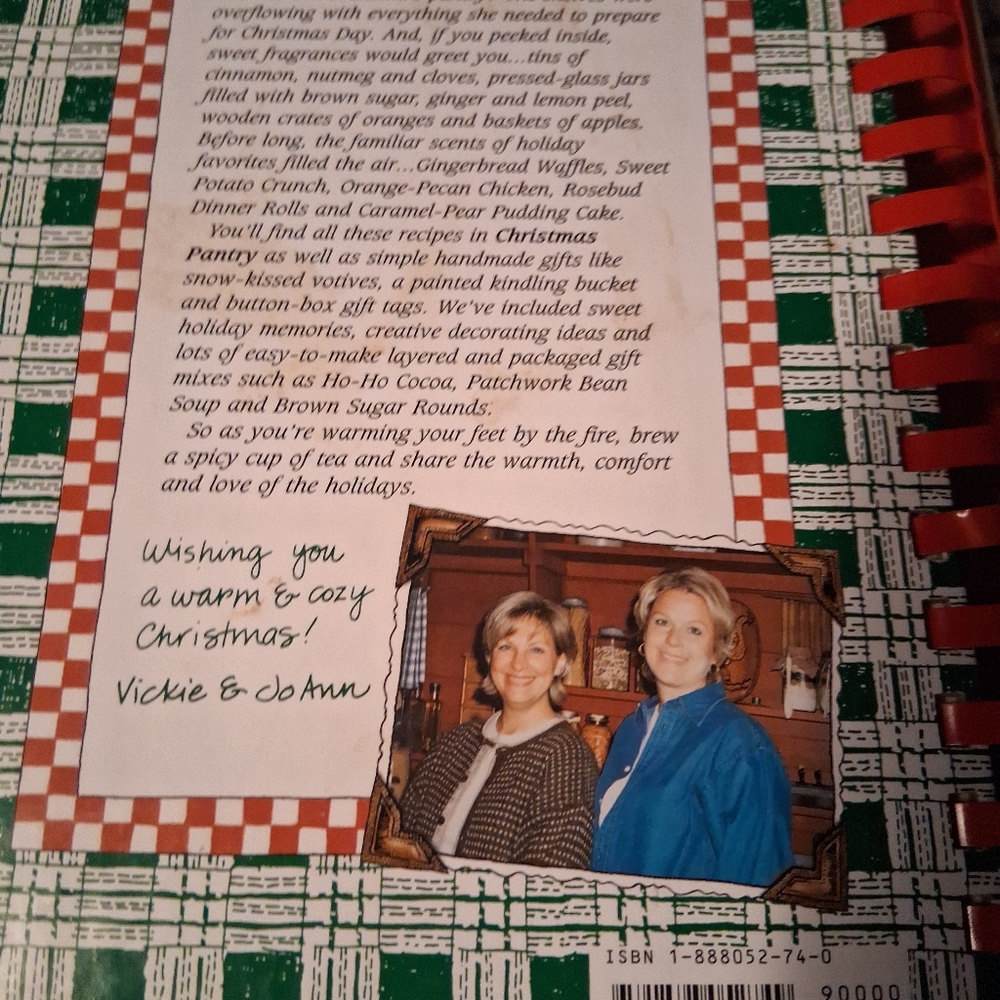 overflowing with everything she needed to prepare
for Christmas Day. And, if you peeked inside,
sweet fragrances would greet you...tins of
cinnamon, nutmeg and cloves, pressed-glass jars
filled with brown sugar, ginger and lemon peel,
wooden crates of oranges and baskets of apples.
Before long, the familiar scents of holiday
favorites filled the air...Gingerbread Waffles, Sweet
Potato Crunch, Orange-Pecan Chicken, Rosebud
Dinner Rolls and Caramel-Pear Pudding Cake.
You'll find all these recipes in Christmas
Pantry as well as simple handmade gifts like
snow-kissed votives, a painted kindling bucket
and button-box gift tags. We've included sweet
holiday memories, creative decorating ideas and
lots of easy-to-make layered and packaged gift
mixes such as Ho-Ho Cocoa, Patchwork Bean
Soup and Brown Sugar Rounds.
So as you're warming your feet by the fire, brew
a spicy cup of tea and share the warmth, comfort
and love of the holidays.
Wishing you
a warm & cozy
Christmas!
Vickie & JoAnn
ISBN 1-888052-74-0
90000